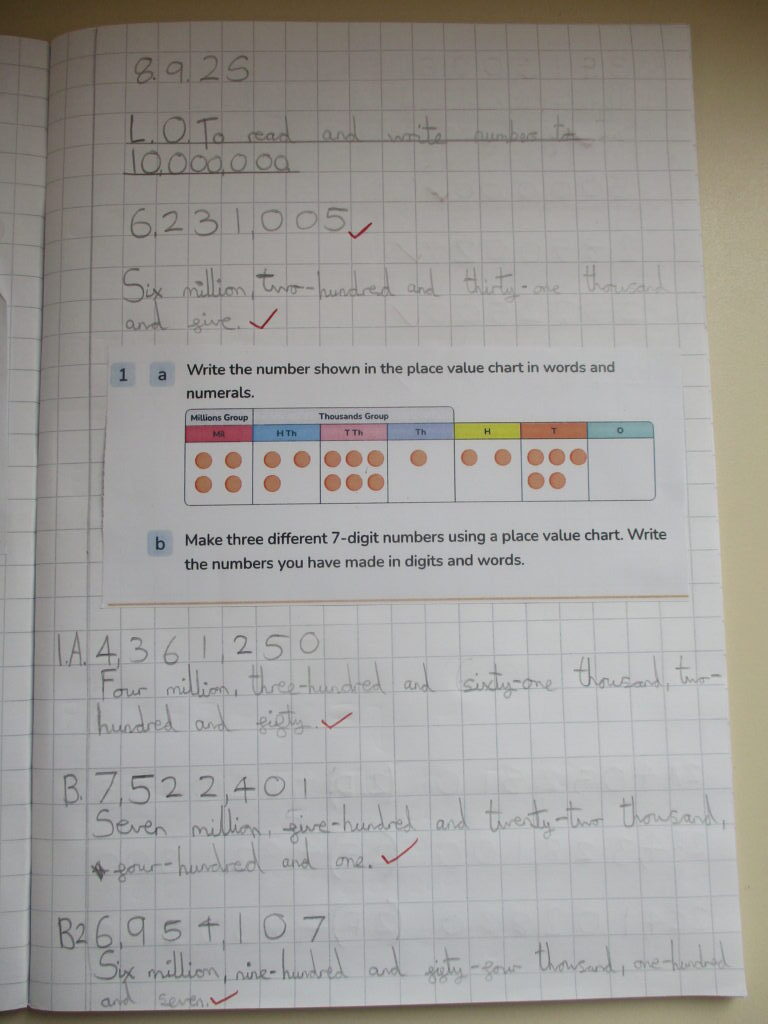 8.9.25
L.O. To read and write numbers to
10,000,000
6,231,005
Six million, two-hundred and thirty-one thousand
and five.
1 a Write the number shown in the place value chart in words and
numerals.
Millions Group Thousands Group
Mil H Th T Th Th H T O
b Make three different 7-digit numbers using a place value chart. Write
the numbers you have made in digits and words.
1.A. 4,361,250
Four million, three-hundred and sixty-one thousand, two-
hundred and fifty.
B. 7,522,401
Seven million, five-hundred and twenty-two thousand,
four-hundred and one.
B2 6,954,107
Six million, nine-hundred and fifty-four thousand, one-hundred
and seven.